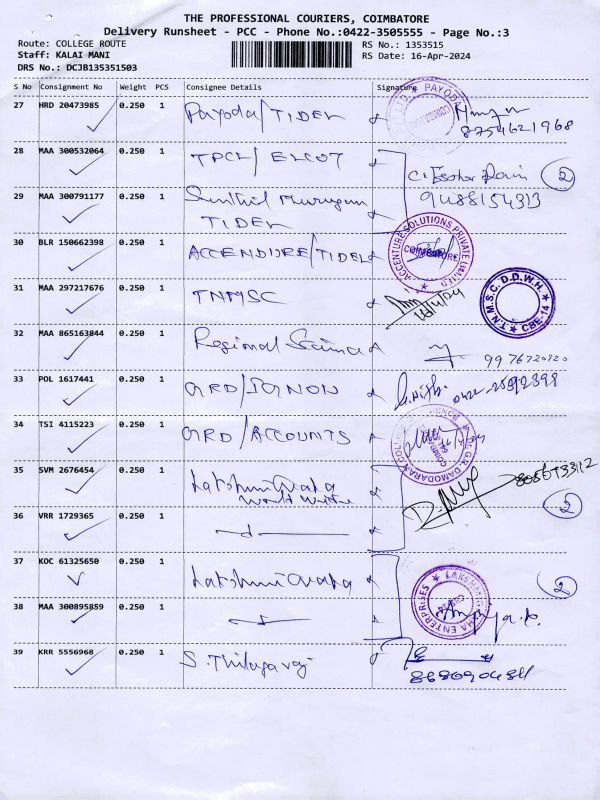 THE PROFESSIONAL COURIERS, COIMBATORE
Delivery Runsheet - PCC - Phone No.:0422-3505555 - Page No.:3
Route: COLLEGE ROUTE
Staff: KALAI MANI
DRS No.: DCJB135351503
RS No.: 1353515
RS Date: 16-Apr-2024
S No Consignment No Weight PCS Consignee Details Signature
27 HRD 20473985 0.250 1 Payoda/TIDEL
8754621968
28 MAA 300532064 0.250 1 TPCL/ELCOT
2
29 MAA 300791177 0.250 1 Senthil Murugan
TIDEL
9488154313
30 BLR 150662398 0.250 1 ACCENDURE/TIDEL
ACCENTURE SOLUTIONS PRIVATE LIMITED
COIMBATORE
31 MAA 297217676 0.250 1 TNMSC
16/4/24
T.N.M.S.C. D.D.W.H.
CBE-14
32 MAA 865163844 0.250 1 Regional Science
9976720720
33 POL 1617441 0.250 1 GRD/IGNOU
34 TSI 4115223 0.250 1 GRD/ACCOUNTS
35 SVM 2676454 0.250 1 Lakshmi
World
36 VRR 1729365 0.250 1
2
37 KOC 61325650 0.250 1 Lakshmi
2
38 MAA 300895859 0.250 1
ENTERPRISES
39 KRR 5556968 0.250 1 S. Thilagavaj